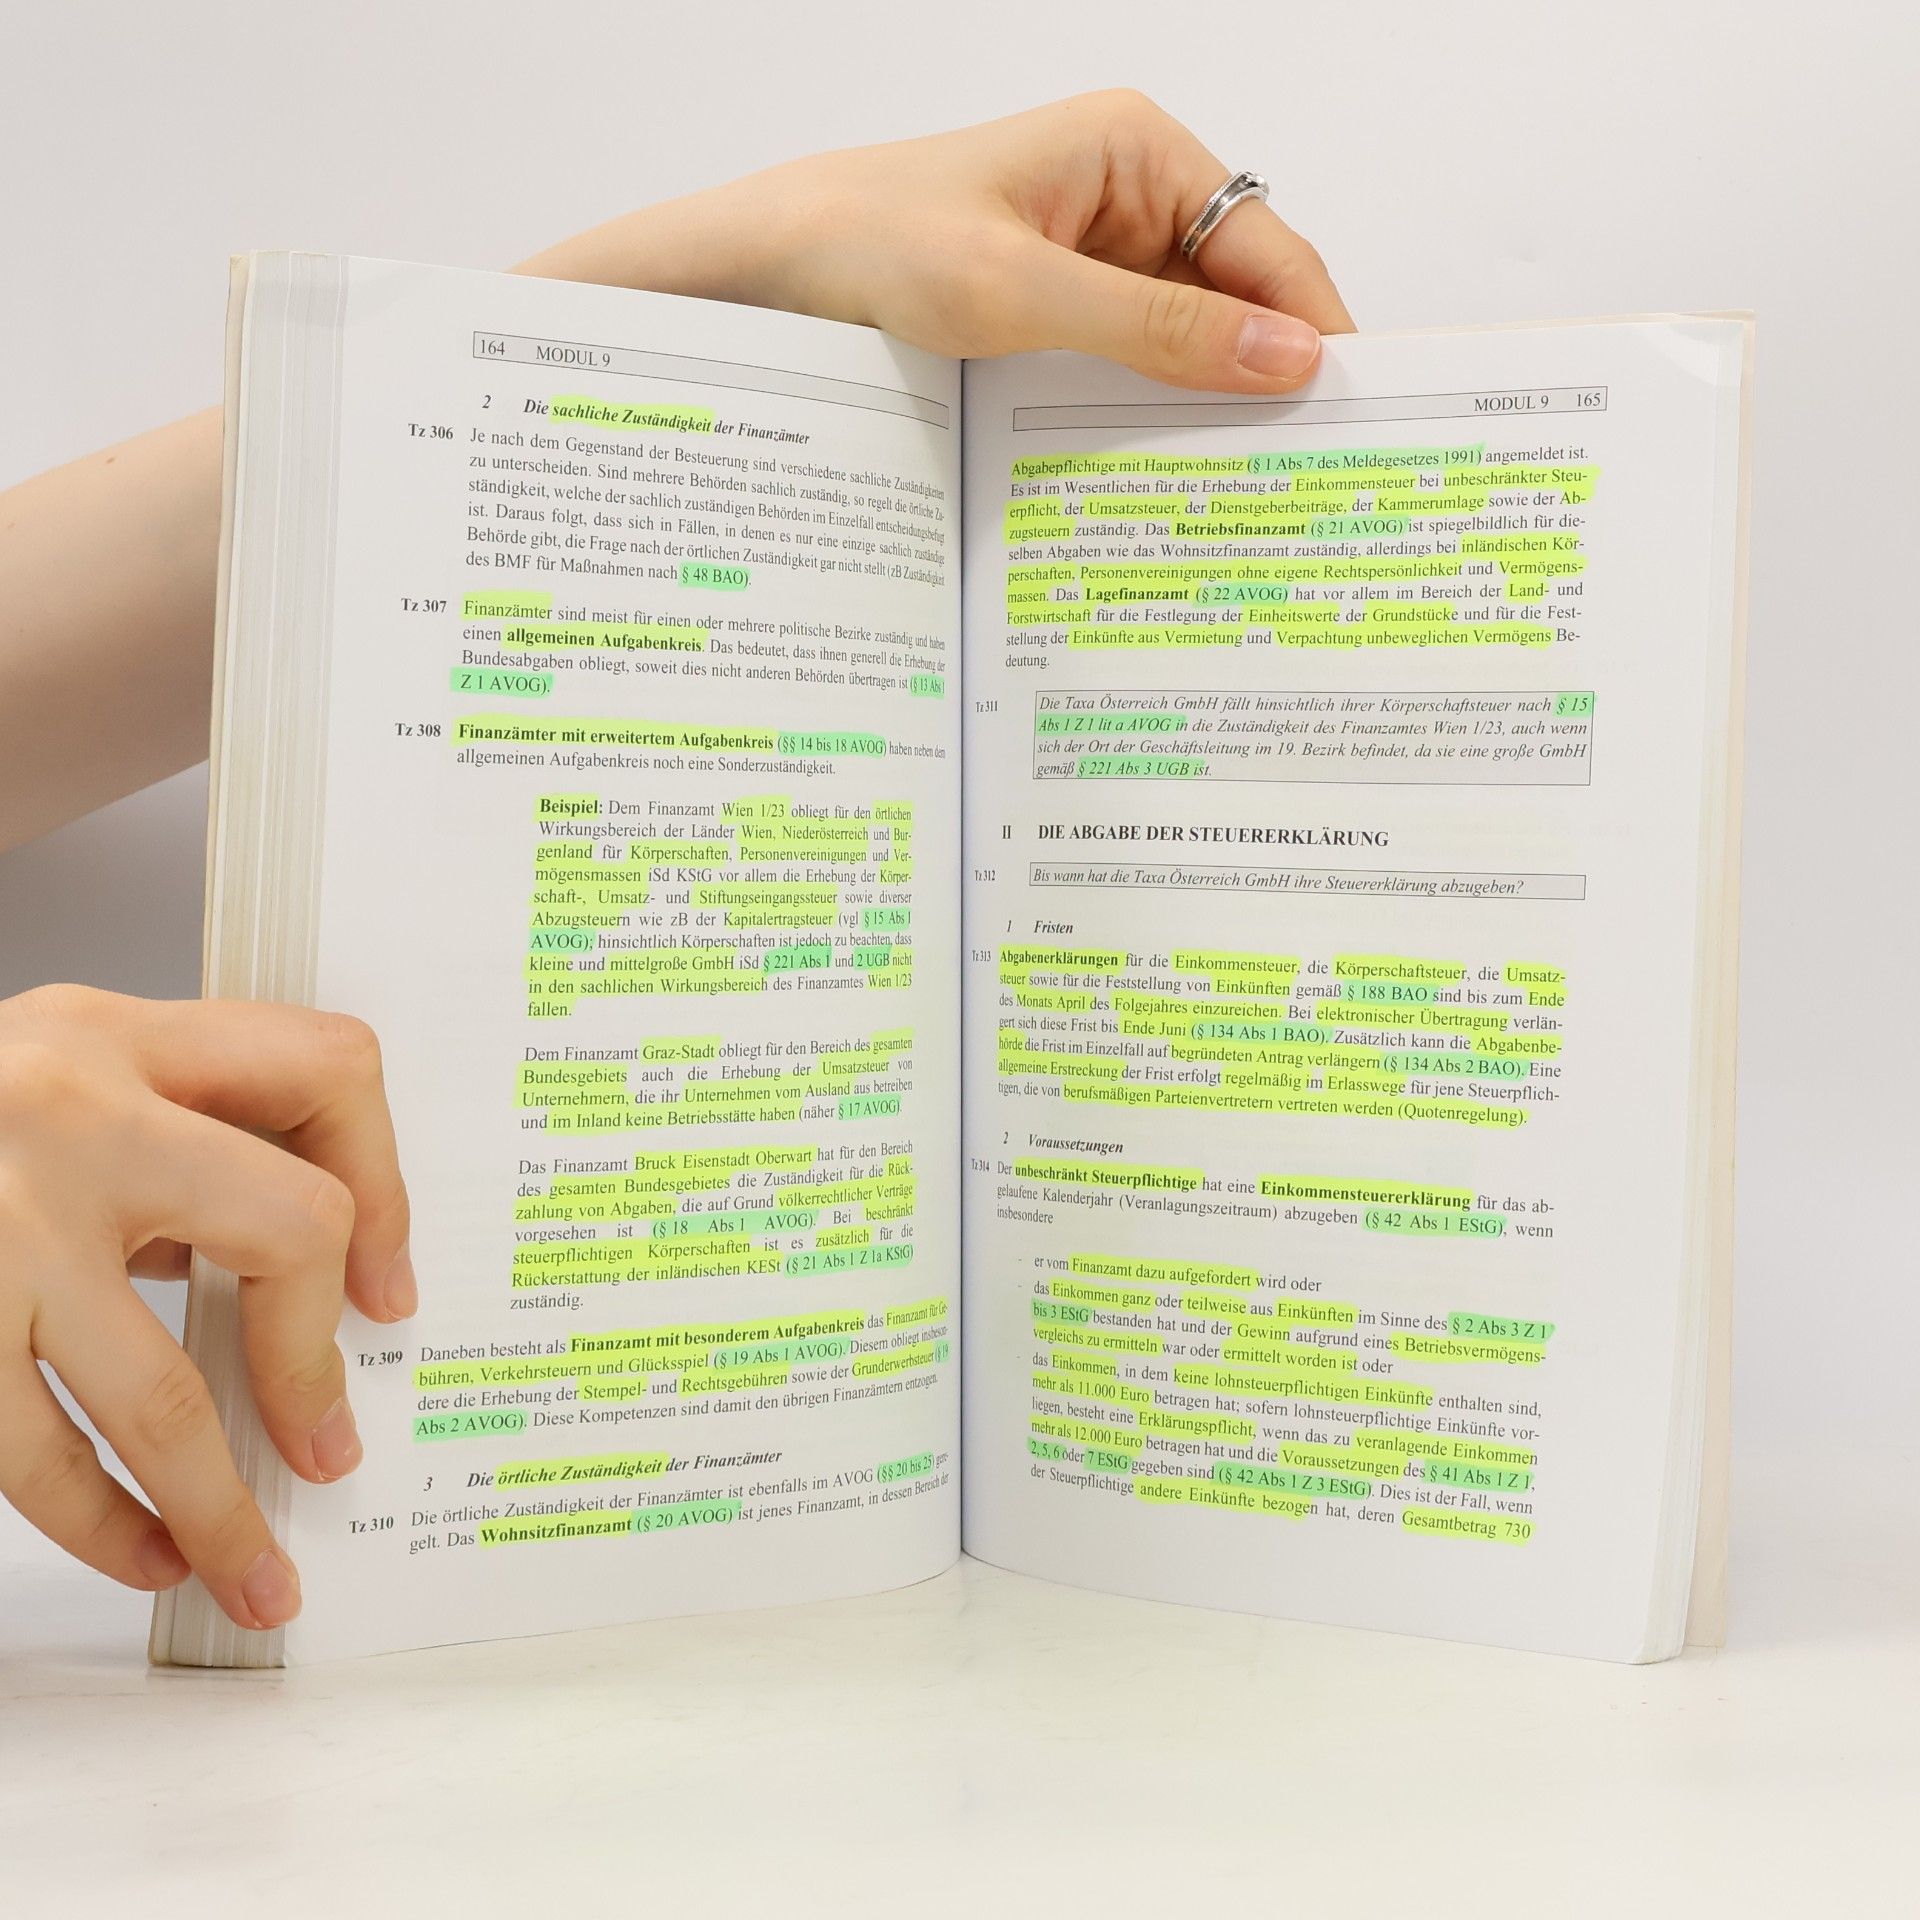 164 MODUL 9
2 Die sachliche Zuständigkeit der Finanzämter
Tz 306 Je nach dem Gegenstand der Besteuerung sind verschiedene sachliche Zuständigkeiten
zu unterscheiden. Sind mehrere Behörden sachlich zuständig, so regelt die örtliche Zu-
ständigkeit, welche der sachlich zuständigen Behörden im Einzelfall entscheidungsbefugt
ist. Daraus folgt, dass sich in Fällen, in denen es nur eine einzige sachlich zuständige
Behörde gibt, die Frage nach der örtlichen Zuständigkeit gar nicht stellt (zB Zuständigkeit
des BMF für Maßnahmen nach § 48 BAO).
Tz 307 Finanzämter sind meist für einen oder mehrere politische Bezirke zuständig und haben
einen allgemeinen Aufgabenkreis. Das bedeutet, dass ihnen generell die Erhebung der
Bundesabgaben obliegt, soweit dies nicht anderen Behörden übertragen ist (§ 13 Abs 1
Z 1 AVOG).
Tz 308 Finanzämter mit erweitertem Aufgabenkreis (§§ 14 bis 18 AVOG) haben neben dem
allgemeinen Aufgabenkreis noch eine Sonderzuständigkeit.
Beispiel: Dem Finanzamt Wien 1/23 obliegt für den örtlichen
Wirkungsbereich der Länder Wien, Niederösterreich und Bur-
genland für Körperschaften, Personenvereinigungen und Ver-
mögensmassen iSd KStG vor allem die Erhebung der Körper-
schaft-, Umsatz- und Stiftungseingangssteuer sowie diverser
Abzugsteuern wie zB der Kapitalertragsteuer (vgl § 15 Abs 1
AVOG); hinsichtlich Körperschaften ist jedoch zu beachten, dass
kleine und mittelgroße GmbH iSd § 221 Abs 1 und 2 UGB nicht
in den sachlichen Wirkungsbereich des Finanzamtes Wien 1/23
fallen.
Dem Finanzamt Graz-Stadt obliegt für den Bereich des gesamten
Bundesgebiets auch die Erhebung der Umsatzsteuer von
Unternehmern, die ihr Unternehmen vom Ausland aus betreiben
und im Inland keine Betriebsstätte haben (näher § 17 AVOG).
Das Finanzamt Bruck Eisenstadt Oberwart hat für den Bereich
des gesamten Bundesgebietes die Zuständigkeit für die Rück-
zahlung von Abgaben, die auf Grund völkerrechtlicher Verträge
vorgesehen ist (§ 18 Abs 1 AVOG). Bei beschränkt
steuerpflichtigen Körperschaften ist es zusätzlich für die
Rückerstattung der inländischen KESt (§ 21 Abs 1 Z 1a KStG)
zuständig.
Tz 309 Daneben besteht als Finanzamt mit besonderem Aufgabenkreis das Finanzamt für Ge-
bühren, Verkehrsteuern und Glücksspiel (§ 19 Abs 1 AVOG). Diesem obliegt insbeson-
dere die Erhebung der Stempel- und Rechtsgebühren sowie der Grunderwerbsteuer (§ 19
Abs 2 AVOG). Diese Kompetenzen sind damit den übrigen Finanzämtern entzogen.
3 Die örtliche Zuständigkeit der Finanzämter
Tz 310 Die örtliche Zuständigkeit der Finanzämter ist ebenfalls im AVOG (§§ 20 bis 25) gere-
gelt. Das Wohnsitzfinanzamt (§ 20 AVOG) ist jenes Finanzamt, in dessen Bereich der
MODUL 9 165
Abgabepflichtige mit Hauptwohnsitz (§ 1 Abs 7 des Meldegesetzes 1991) angemeldet ist.
Es ist im Wesentlichen für die Erhebung der Einkommensteuer bei unbeschränkter Steu-
erpflicht, der Umsatzsteuer, der Dienstgeberbeiträge, der Kammerumlage sowie der Ab-
zugsteuern zuständig. Das Betriebsfinanzamt (§ 21 AVOG) ist spiegelbildlich für die-
selben Abgaben wie das Wohnsitzfinanzamt zuständig, allerdings bei inländischen Kör-
perschaften, Personenvereinigungen ohne eigene Rechtspersönlichkeit und Vermögens-
massen. Das Lagefinanzamt (§ 22 AVOG) hat vor allem im Bereich der Land- und
Forstwirtschaft für die Festlegung der Einheitswerte der Grundstücke und für die Fest-
stellung der Einkünfte aus Vermietung und Verpachtung unbeweglichen Vermögens Be-
deutung.
Tz 311 Die Taxa Österreich GmbH fällt hinsichtlich ihrer Körperschaftsteuer nach § 15
Abs 1 Z 1 lit a AVOG in die Zuständigkeit des Finanzamtes Wien 1/23, auch wenn
sich der Ort der Geschäftsleitung im 19. Bezirk befindet, da sie eine große GmbH
gemäß § 221 Abs 3 UGB ist.
II DIE ABGABE DER STEUERERKLÄRUNG
Tz 312 Bis wann hat die Taxa Österreich GmbH ihre Steuererklärung abzugeben?
1 Fristen
Tz 313 Abgabenerklärungen für die Einkommensteuer, die Körperschaftsteuer, die Umsatz-
steuer sowie für die Feststellung von Einkünften gemäß § 188 BAO sind bis zum Ende
des Monats April des Folgejahres einzureichen. Bei elektronischer Übertragung verlän-
gert sich diese Frist bis Ende Juni (§ 134 Abs 1 BAO). Zusätzlich kann die Abgabenbe-
hörde die Frist im Einzelfall auf begründeten Antrag verlängern (§ 134 Abs 2 BAO). Eine
allgemeine Erstreckung der Frist erfolgt regelmäßig im Erlasswege für jene Steuerpflich-
tigen, die von berufsmäßigen Parteienvertretern vertreten werden (Quotenregelung).
2 Voraussetzungen
Tz 314 Der unbeschränkt Steuerpflichtige hat eine Einkommensteuererklärung für das ab-
gelaufene Kalenderjahr (Veranlagungszeitraum) abzugeben (§ 42 Abs 1 EStG), wenn
insbesondere
- er vom Finanzamt dazu aufgefordert wird oder
- das Einkommen ganz oder teilweise aus Einkünften im Sinne des § 2 Abs 3 Z 1
bis 3 EStG bestanden hat und der Gewinn aufgrund eines Betriebsvermögens-
vergleichs zu ermitteln war oder ermittelt worden ist oder
- das Einkommen, in dem keine lohnsteuerpflichtigen Einkünfte enthalten sind,
mehr als 11.000 Euro betragen hat; sofern lohnsteuerpflichtige Einkünfte vor-
liegen, besteht eine Erklärungspflicht, wenn das zu veranlagende Einkommen
mehr als 12.000 Euro betragen hat und die Voraussetzungen des § 41 Abs 1 Z 1,
2, 5, 6 oder 7 EStG gegeben sind (§ 42 Abs 1 Z 3 EStG). Dies ist der Fall, wenn
der Steuerpflichtige andere Einkünfte bezogen hat, deren Gesamtbetrag 730